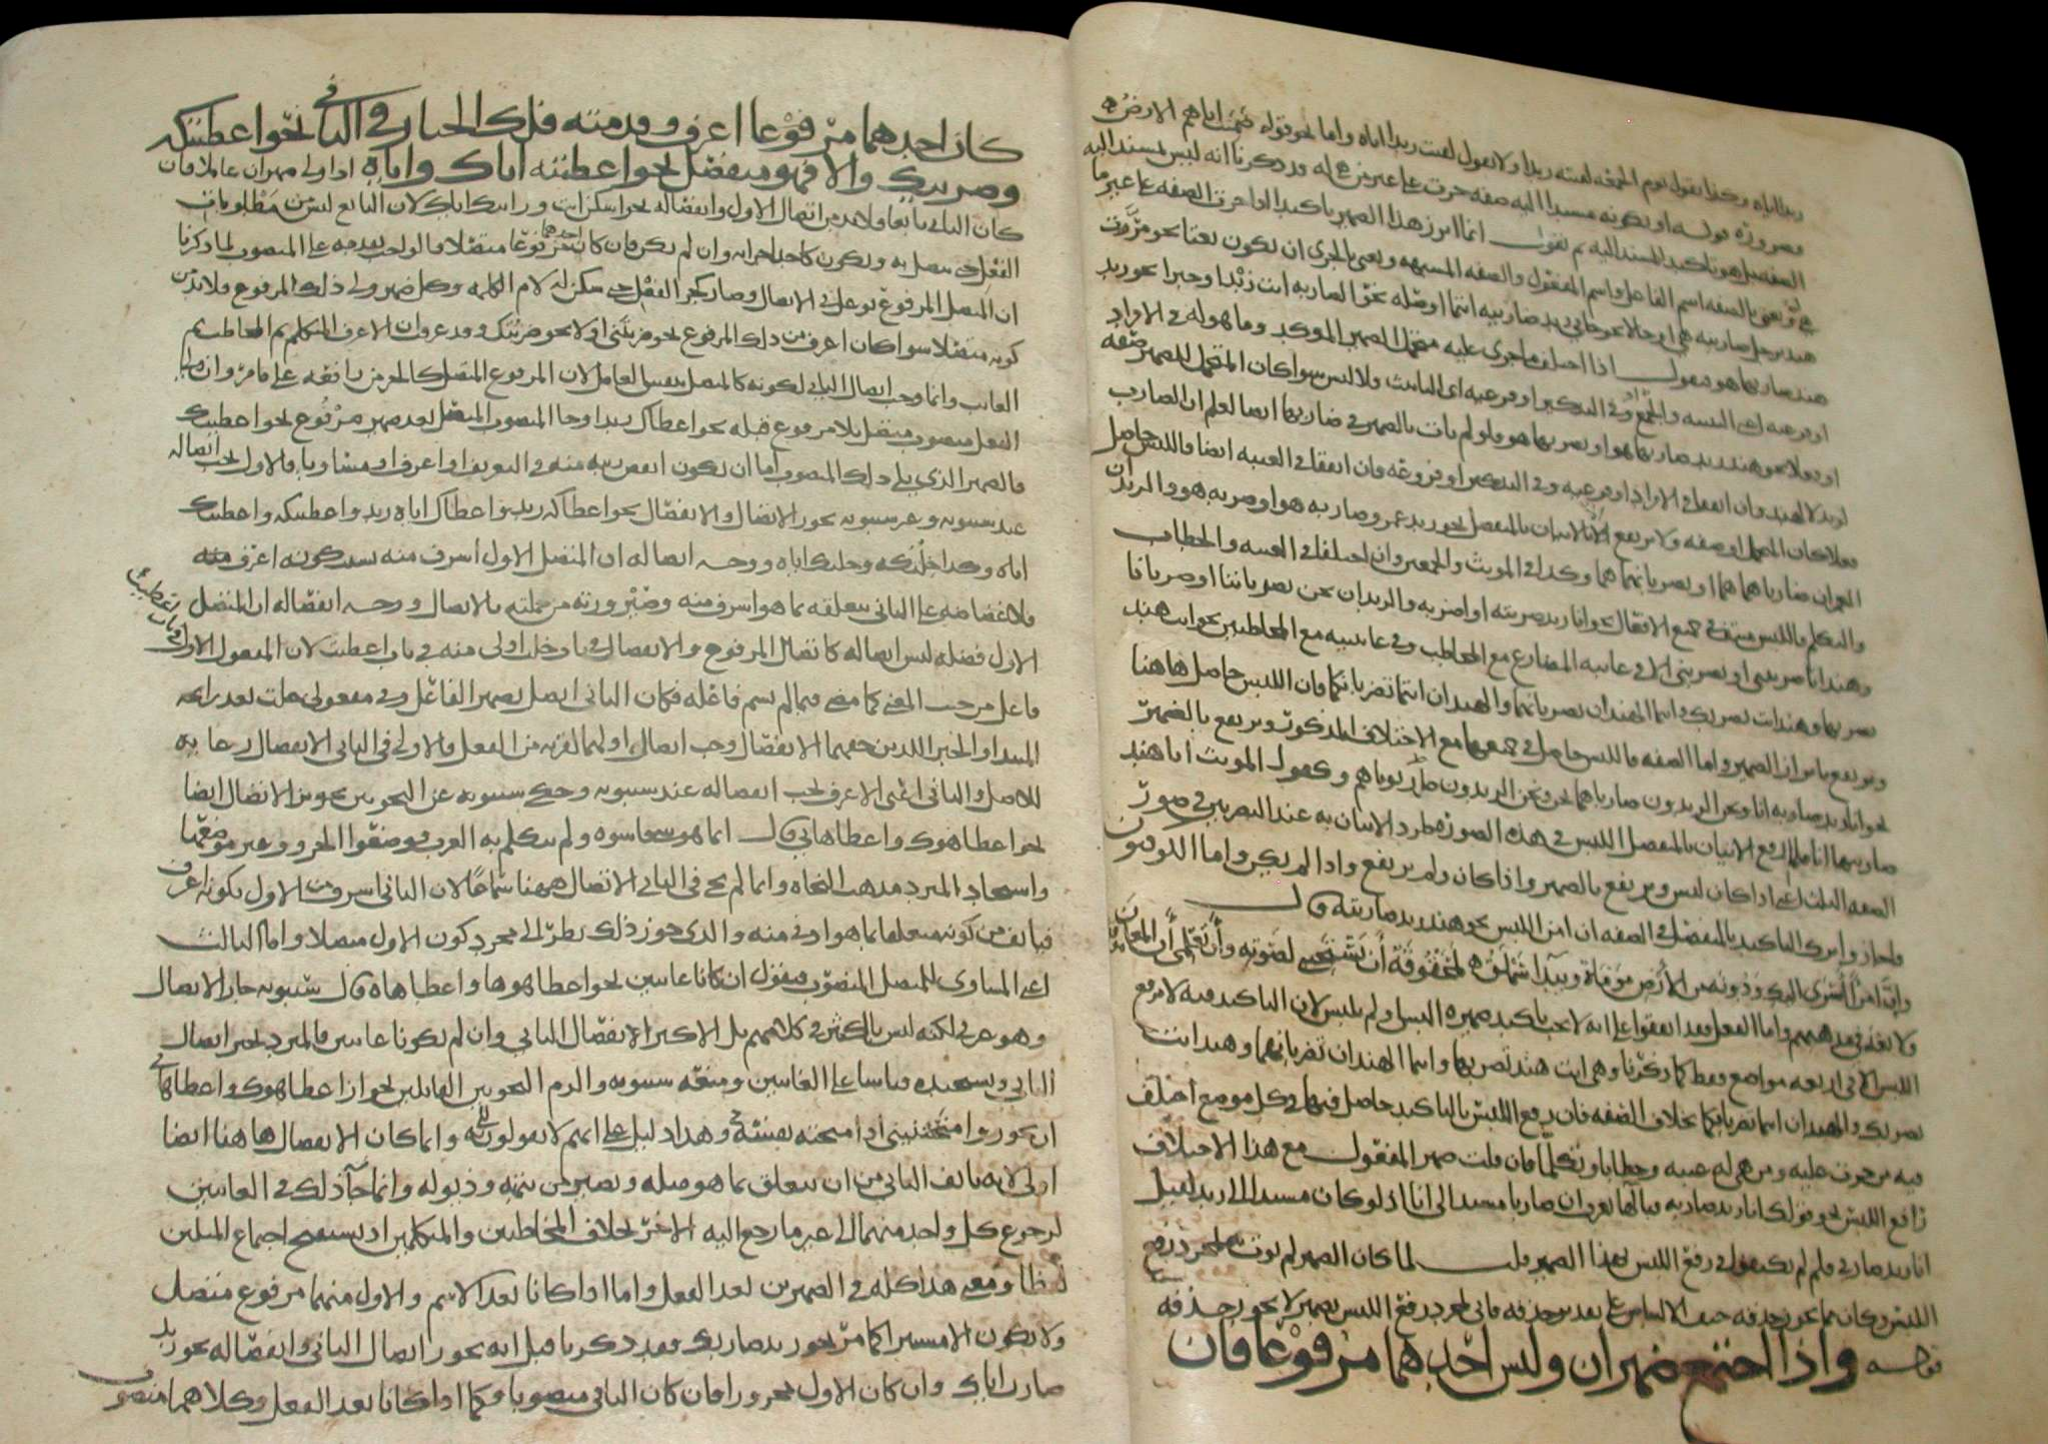 زيدا اياه وكذا يقول يوم الجمعة لقيته زيدا ولا تقول لقيت زيدا اياه واما نحو قوله ضمنت اياهم الارض
فضرورة قوله او بكونه مسندا اليه صفة جرت على غير من هي له قد ذكرنا انه ليس لمسند اليه
المنفصل هو تاكيد للمسند اليه ثم نقول انما ابرز هذا الضمير تاكيدا اذا جرت الصفة على غير ما
هي له ونعني بالصفة اسم الفاعل واسم المفعول والصفة المشبهة ونعني بالجري ان تكون نعتا نحو مررت
هند برجل ضاربته هي او حالا نحو جاءني زيد ضاربيه انتما او صلة نحو الضاربه انت زيد او خبرا نحو زيد
هند ضاربها هو فنقول اذا اختلف ما جرى عليه متحمل الضمير المؤكد وما هو له في الافراد
او فرعيه اي التثنية والجمع او في التذكير او فرعيه اي التانيث فلا لبس سواء كان المتحمل للضمير صفة
او فعلا نحو هند زيد ضاربها هو او يضربها هو فلو لم تات بالضمير في ضاربها ايضا لعلم ان الضارب
لزيد لا لهند وان اتفقا في الافراد او فرعيه وفي التذكير او فرعه فان اتفقا في الغيبة ايضا فاللبس حاصل
فعلا كان المتحمل او صفة ولا يرتفع الا بالاتيان بالمنفصل نحو زيد عمرو ضاربه هو او ضربه هو والزيدان
العمران ضارباهما هما او يضربانهما هما وكذا في المؤنث والجمعين وان اختلفا في الغيبة والخطاب
والتكلم فاللبس منتف في جميع الافعال نحو انا زيد ضربته او اضربه والزيدان نحن يضرباننا او ضربانا
وهند انا ضربتني او تضربني الا في غائبة المضارع مع المخاطب وفي غائبتيه مع المخاطبين نحو انت هند
تضربها وهند انت تضربك وانتما الهندان تضربانهما والهندان انتما تضربانكما فان اللبس حاصل هاهنا
ويرتفع بابراز الضمير واما الصفة فاللبس حاصل في جميعها مع الاختلاف المذكور ويرتفع بالضمير
نحو انا زيد ضاربه انا ونحن الزيدون ضاربوهم نحن ونحن الزيدون ضاربوناهم وكقول المؤنث انا هند
ضاربتها انا فلما رفع الاتيان بالمنفصل اللبس في هذه الصور طرد الاتيان به عند البصريين في صور
الصفة الثلاث اعني اذا كان لبس ويرتفع بالضمير واذا كان ولم يرتفع واذا لم يكن واما الكوفيون
فاجازوا ترك التاكيد بالمنفصل في الصفة ان امن اللبس نحو هند زيد ضاربته قال
وان امرا اسرى اليك ودونه من الارض موماة وبيداء سملق لمحقوقة ان تستجيبي لصوته وان تعلمي ان المعان موفق
ولا نقلة في مذهبهم واما الفعل فقد اتفقوا على انه لا يجب تاكيد ضميره البس او لم يلبس لان التاكيد فيه لا يرفع
اللبس الا في اربعة مواضع فقط كما ذكرنا وهي انت هند تضربها وانتما الهندان تضربانهما وهند انت
تضربك والهندان انتما تضربانكما بخلاف الصفة فان رفع اللبس بالتاكيد حاصل فيها في كل موضع اختلف
فيه من جرت عليه ومن هي له غيبة وخطابا وتكلما فان قلت ضمير المفعول مع هذا الاختلاف
رافع اللبس نحو قولك انا زيد ضاربه فبالهاء يعرف ان ضاربا مسند الى انا اذ لو كان مسندا الى زيد لقيل
انا زيد ضاربي فلم لم يكتفوا في رفع اللبس بهذا الضمير قلت لما كان الضمير لم يؤت به لمجرد رفع
اللبس وكان مما يجوز حذفه خيف الالباس على تقدير حذفه فاتي لمجرد رفع اللبس بضمير لا يجوز حذفه
قوله واذا اجتمع ضميران وليس احدهما مرفوعا فان
كان احدهما مرفوعا اعرف وقدمته فلك الخيار في الثاني نحو اعطيتكه
وضربيك والا فهو منفصل نحو اعطيته اياك واياه اذا ولي ضميران عاملا فان
كان الثاني تابعا فلا بد من اتصال الاول وانفصاله نحو اسكن انت ورايتك اياك لان التابع ليس من مطلوبات
الفعل حتى يتصل به ويكون كاحد اجزائه وان لم يكن فان كان احدهما مرفوعا متصلا فالواجب تقديمه على المنصوب لما ذكرنا
ان المتصل المرفوع توغل في الاتصال وصار كجزء الفعل حتى سكن له لام الكلمة وكل ضمير ولي ذلك المرفوع فلا بد من
كونه متصلا سواء كان اعرف من ذلك المرفوع نحو ضربتني او لا نحو ضربتك وقد عرفت ان الاعرف المتكلم ثم المخاطب ثم
الغائب وانما وجب اتصال الثاني لكونه كالمتصل بنفس العامل لان المرفوع المتصل كالجزء من رافعه على ما مر وان ولي
الفعل منصوب متصل بلا مرفوع قبله نحو اعطاك زيد او جاء المنصوب المتصل بعد ضمير مرفوع نحو اعطيتك
فالضمير الذي يلي ذلك المنصوب اما ان يكون انقص رتبة منه في التعريف او اعرف او مساويا فالاول يجب اتصاله
عند سيبويه وغير سيبويه يجوز الاتصال والانفصال نحو اعطاكه زيد واعطاك اياه زيد واعطيتكه واعطيتك
اياه وكذا خلتكه وخلتك اياه ووجه اتصاله ان المتصل الاول اشرف منه بسبب كونه اعرف منه
فلا غضاضة على الثاني بتعلقه بما هو اشرف منه وصيرورته من جملته بالاتصال ووجه انفصاله ان المتصل
الاول فضلة ليس اتصاله كاتصال المرفوع والانفصال في باب خلت اولى منه في باب اعطيت لان المفعول الاول في باب اعطيت
فاعل من حيث المعنى كما مضى فيما لم يسم فاعله فكان الثاني اتصل بضمير الفاعل وفي مفعولي علمت بعد رايحة
المبتدا والخبر اللذين حقهما الانفصال وجب اتصال اولهما لقربه من الفعل فالاولى في الثاني الانفصال رعاية
للاصل والثاني اعني الاعرف يجب انفصاله عند سيبويه وحكى سيبويه عن النحويين تجويز الاتصال ايضا
نحو اعطاهوك واعطاهاني قال انما هو شيء قاسوه ولم يتكلم به العرب فوضعوا الحروف غير موضعها
واستجاد المبرد مذهب النحاة وانما لم يجز في الثاني الاتصال ههنا سماعا لان الثاني اشرف من الاول بكونه اعرف
فيانف من كونه متعلقا بما هو ادنى منه والذي جوز ذلك نظر الى مجرد كون الاول متصلا واما الثالث
اعني المساوي للمتصل المنصوب فنقول ان كانا غائبين نحو اعطاهوها واعطاهاه قال سيبويه جاز الاتصال
وهو عربي لكنه ليس بالكثير في كلامهم بل الاكثر الانفصال الثاني وان لم يكونا غائبين فالمبرد يجيز اتصال
الثاني ويستحسنه قياسا على الغائبين ومنعه سيبويه والزم النحويين القائلين بجواز اعطاهوك واعطاهاني
ان يجوزوا منحتنيني اذا منحته نفسه وهذا دليل على انهم لا يقولون له وانما كان الانفصال هاهنا ايضا
اولى لانه يانف الثاني من ان يتعلق بما هو مثله ويصير من تتمته وذيوله وانما جاز ذلك في الغائبين
لرجوع كل واحد منهما الى غير ما رجع اليه الاخر بخلاف المخاطبين والمتكلمين اذ يستقبح اجتماع المثلين
لفظا ومعنى هذا كله في الضميرين بعد الفعل واما اذا كانا بعد الاسم والاول منهما مرفوع متصل
ولا يكون الا مستترا كما مر نحو زيد ضاربك فقد ذكرنا قبل انه يجوز اتصال الثاني وانفصاله نحو زيد
ضارب اياك وان كان الاول مجرورا فان كان الثاني منصوبا فكما اذا كانا بعد الفعل وكلاهما منصوب